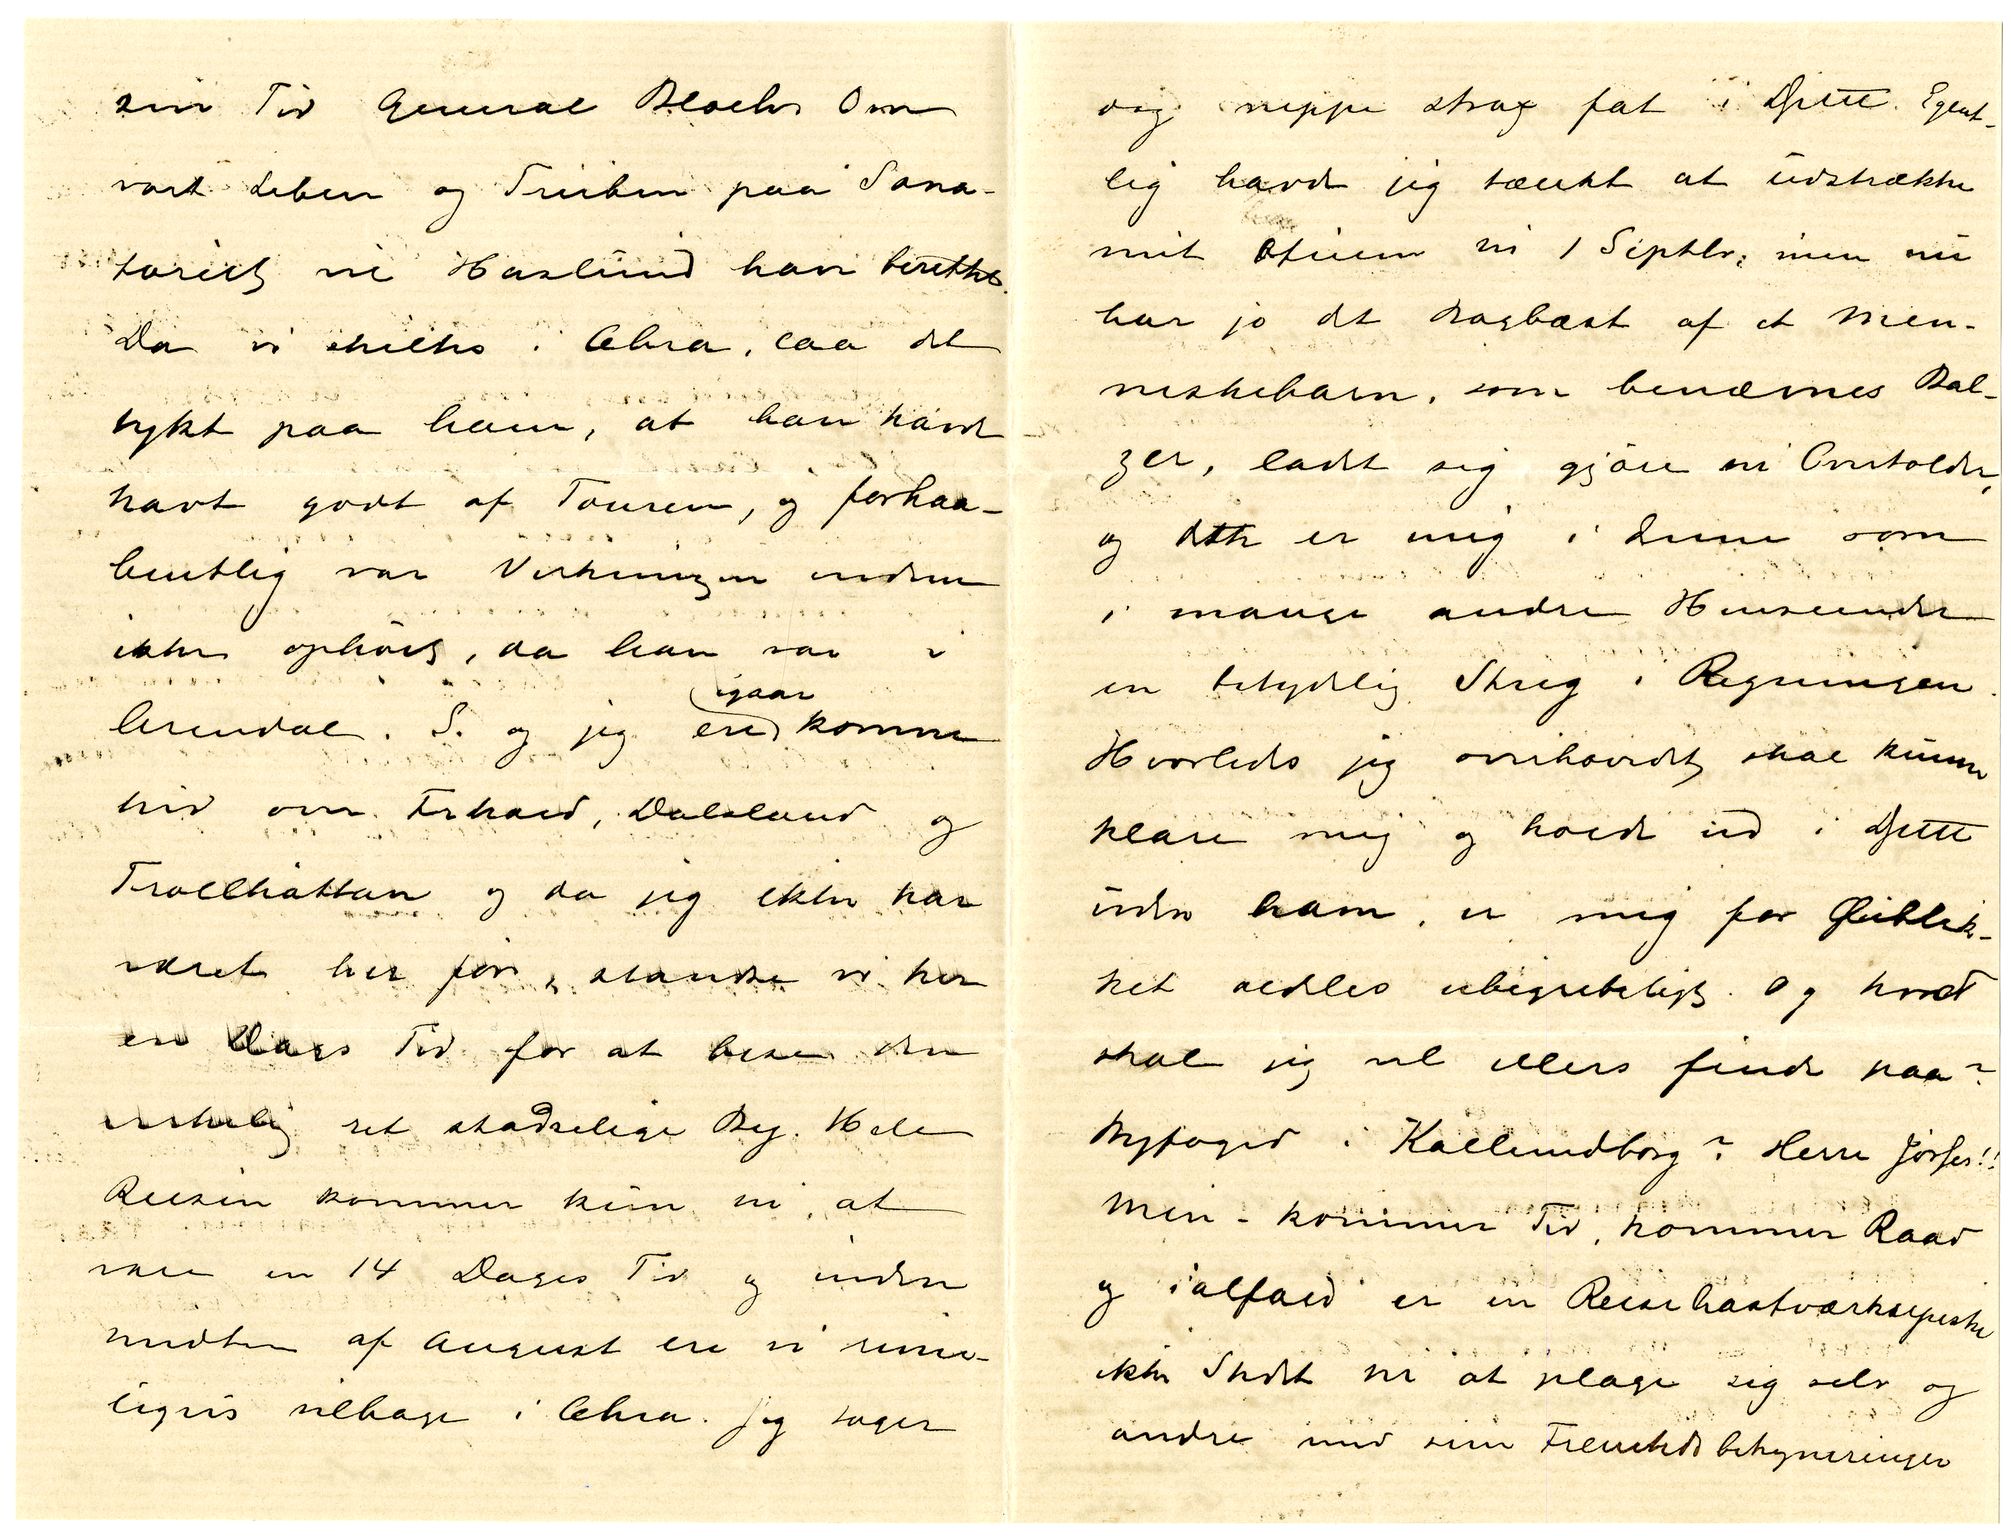 sin Tid General Bloch. Om
vort Leben og Treiben paa Sana-
toriet vil Haslund have berettet.
Da vi skiltes i Chra, saa det
tykt paa ham, at han havde
havt godt af Touren, og forhaa-
bentlig var Virkningen endnu
ikke ophørt, da han var i
Arendal. S. og jeg ere igaar komne
hid over Frhald, Dalsland og
Trollhättan og da jeg ikke har
været her før, standse vi her
en Dags Tid for at bese den
virkelig ret stadselige By. Hele
Reisen kommer kun til at
vare en 14 Dages Tid og inden
midten af August ere vi rime-
ligvis tilbage i Chra. Jeg tager
dog neppe strax fat i Dfttt. Egent-
lig havde jeg tænkt at udstrække
mit Otium til 1 Septbr; men nu
har jo det Bagbæst af et Men-
neskebarn, som benævnes Bal-
zer, ladet sig gjøre til Overtolder,
og dette er mig i denne som
i mange andre Henseender
en betydelig Streg i Regningen.
Hvorledes jeg overhovedet skal kunne
klare mig og holde ud i Dfttt
uden ham, er mig for Øieblik-
ket aldeles ubegribeligt. Og hvad
skal jeg vel ellers finde paa?
Byfoged i Kallundborg? Herre Jösses!!
Men - kommer Tid, kommer Raad
og ialfald er en
ikke Stedet til at plage sig selv og
andre med sine Fremtidsbekymringer